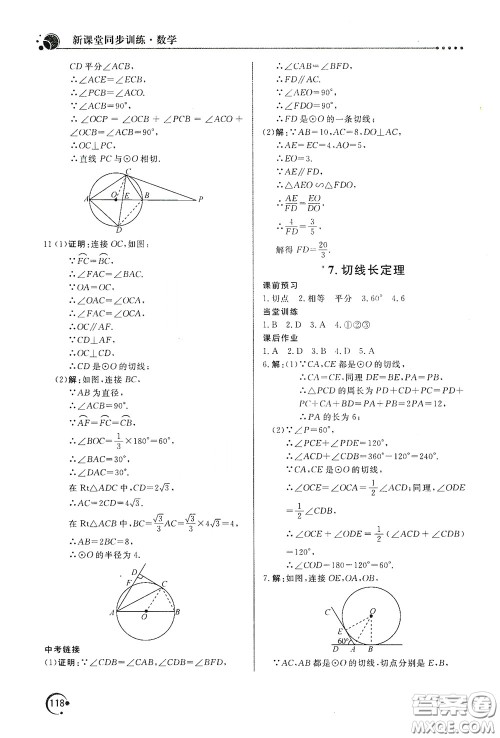 新课堂同步训练·数学
CD 平分∠ACB,
∴∠ACE=∠ECB,
∴∠PCB=∠ACO.
∵∠ACB=90°,
∴∠OCP=∠OCB+∠PCB=∠ACO+
∠OCB=∠ACB=90°,
∴OC⊥PC,
∴直线 PC 与⊙O 相切.
A O B C D P
11 (1)证明:连接 OC,如图:
∵FC=BC,
∴∠FAC=∠BAC.
∵OA=OC,
∴∠OAC=∠OCA,
∴∠FAC=∠OCA,
∴OC∥AF.
∵CD⊥AF,
∴OC⊥CD,
∴CD 是⊙O 的切线;
(2)解:如图,连接 BC,
∵AB 为直径,
∴∠ACB=90°.
∵AF=FC=CB,
∴∠BOC=1/3×180°=60°,
∴∠BAC=30°,
∴∠DAC=30°.
在 Rt△ADC 中,CD=2√3,
∴AC=2CD=4√3.
在 Rt△ACB 中,BC=√3/3 AC=√3/3×4√3=4,
∴AB=2BC=8,
∴⊙O 的半径为 4.
D F C A O B
中考链接
(1)证明:∵∠CDB=∠CAB,∠CDB=∠BFD,
118
∴∠CAB=∠BFD,
∴FD∥AC.
∵∠AEO=90°,
∴∠FDO=90°,
∴FD 是⊙O 的一条切线;
(2)解:∵AB=10,AC=8,DO⊥AC,
∴AE=EC=4,AO=5,
∴EO=3.
∵AE∥FD,
∴△AEO∽△FDO,
∴AE/FD=EO/DO,
∴4/FD=3/5,
解得 FD=20/3.
*7. 切线长定理
课前预习
1. 切点 2. 相等 平分 3. 60° 4. 6
当堂训练
1. B 2. D 3. A 4. ①②③
课后作业
1. A 2. D 3. B 4. A 5. B
6. 解:(1)∵CA,CE 都是⊙O 的切线,
∴CA=CE,同理 DE=BE,PA=PB,
∴△PCD 的周长=PD+CD+PC=
PC+CA+BD+PD=PA+PB=12,
∴PA 的长为 6;
(2)∵∠P=60°,
∴∠PCE+∠PDE=120°,
∴∠ACD+∠CDB=360°-120°=240°,
∴∠OCE=∠OCA=1/2∠ACD;同理,∠ODE=
1/2∠CDB,
∴∠OCE+∠ODE=1/2(∠ACD+∠CDB)
=120°,
∴∠COD=180-120°=60°.
7. 解:如图,连接 OE,OA,OB,
C O E 60° D A B
∵AC,AB 都是⊙O 的切线,切点分别是 E,B,
答案圈
MXQE.COM